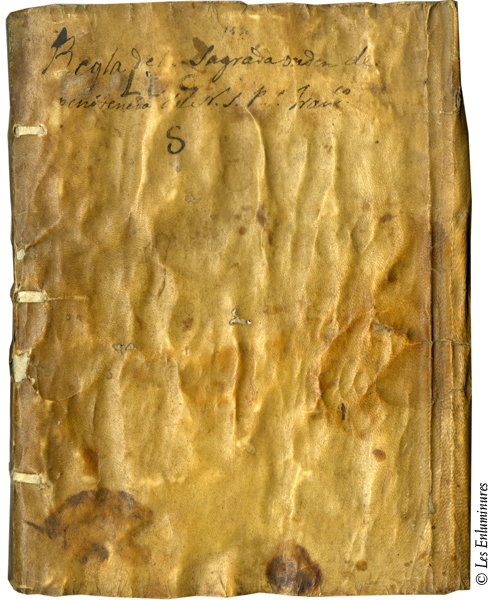 Regla de la Sagrada orden de
penitencia de N. S. P.e Fran.co
S
© Les Enluminures